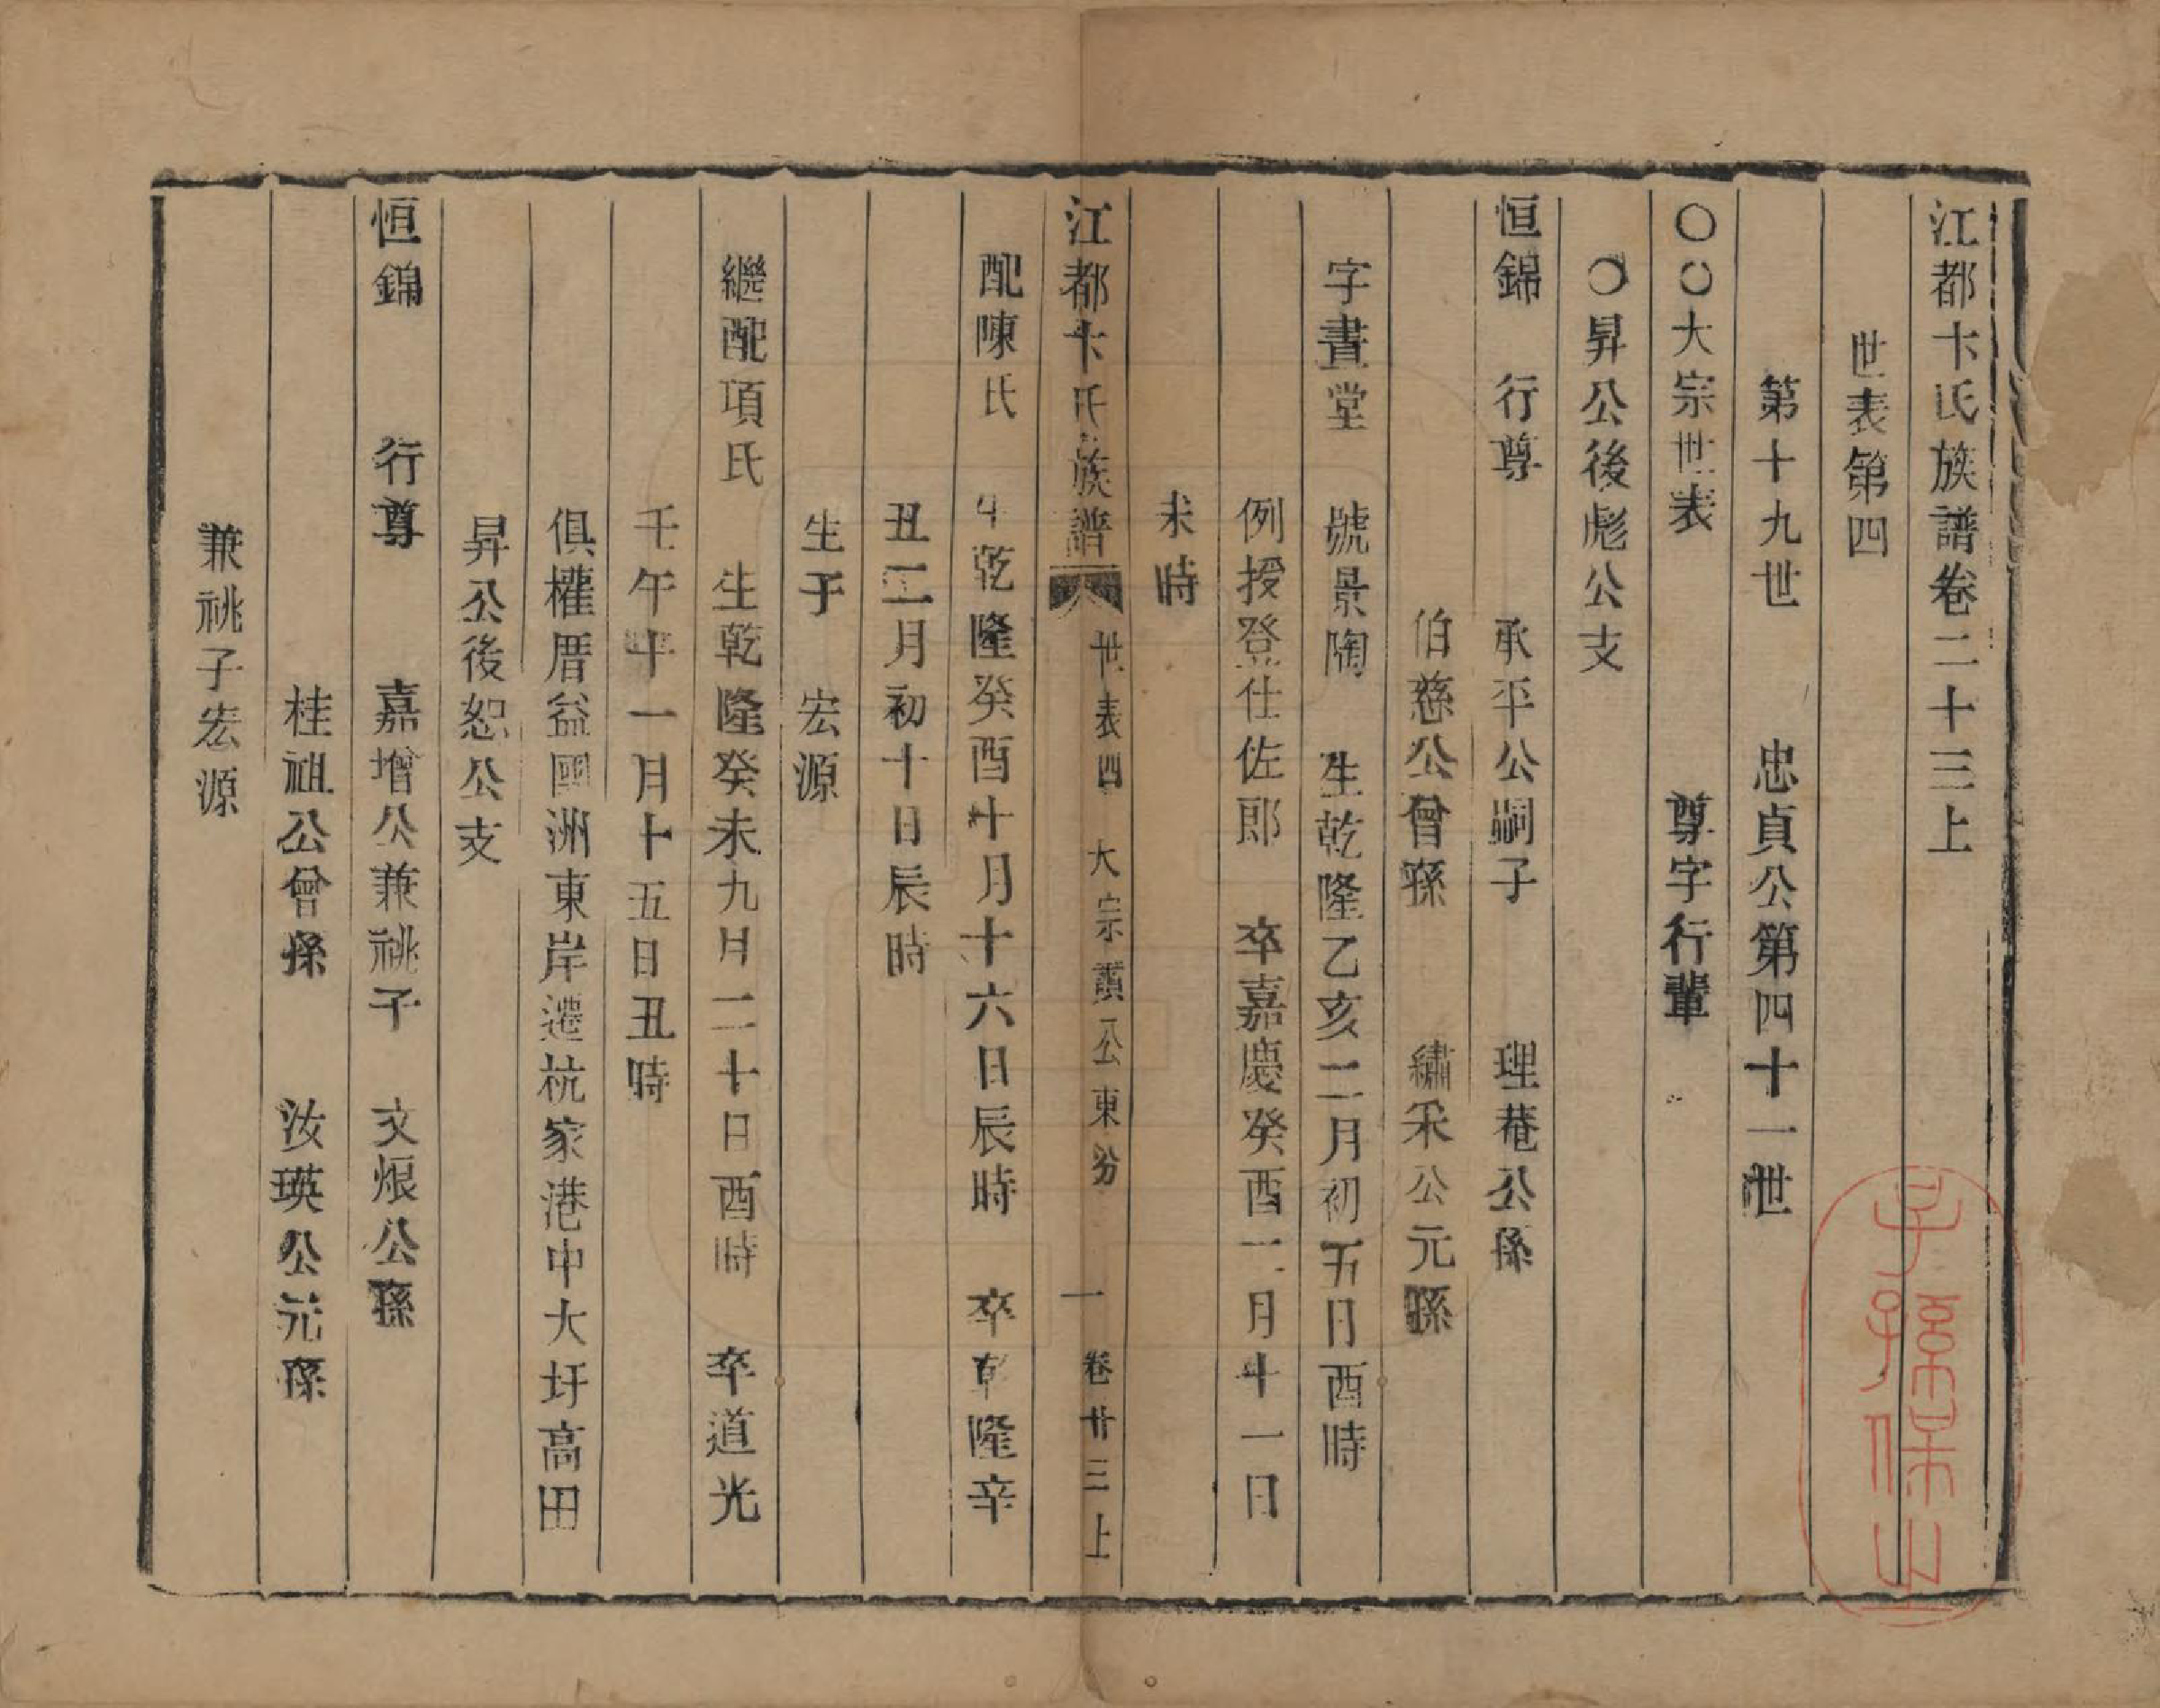 江都卞氏族譜卷二十三上
世表第四
第十九世 忠貞公第四十一世
〇〇大宗世表 尊字行輩
〇昇公後彪公支
恒錦 行尊 承平公嗣子 理菴公孫
伯慈公曾孫 繡采公元孫
字書堂 號景陶 生乾隆乙亥二月初五日酉時
例授登仕佐郎 卒嘉慶癸酉一月十一日
未時
江都卞氏族譜 世表四 大宗 公東分 一 卷廿三上
配陳氏 生乾隆癸酉十月十六日辰時 卒乾隆辛
丑二月初十日辰時
生子 宏源
繼配項氏 生乾隆癸未九月二十日酉時 卒道光
壬午年一月十五日丑時
俱權厝益國洲東岸遷杭家港中大圩高田
昇公後恕公支
恒錦 行尊 嘉增公兼祧子 文烺公孫
桂祖公曾孫 汝瑛公元孫
兼祧子宏源
子孫保之